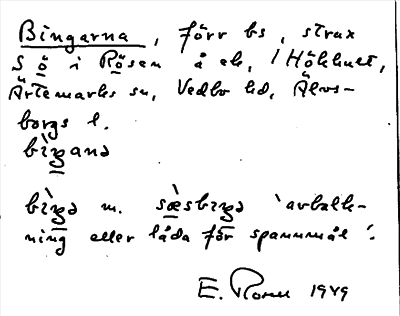 Bingarna, förr bs, strax
S ö i Rösan å ek, / Hökhult,
Ärtemarks sn, Vedbo hd, Älvs-
borgs l.
bìŋana
bìŋə m. sæ̀sbiŋə 'avbalk-
ning eller låda för spannmål'.
E. 1949